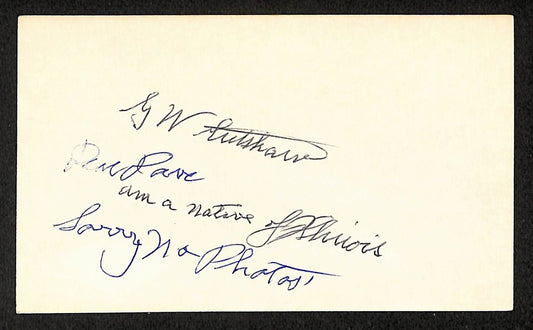 G W Cutshaw
Dear Dave
am a native of Illinois
Sorry No Photos'